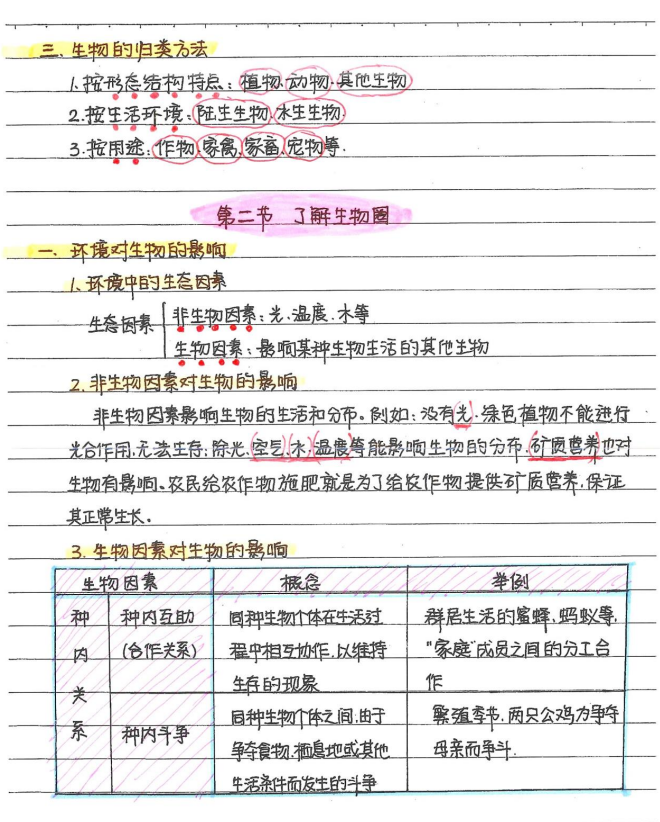 三、生物的归类方法
1.按形态结构特点:植物、动物、其他生物
2.按生活环境:陆生生物、水生生物
3.按用途:作物、家禽、家畜、宠物等.
第二节 了解生物圈
一、环境对生物的影响
1.环境中的生态因素
生态因素
非生物因素:光、温度、水等
生物因素:影响某种生物生活的其他生物
2.非生物因素对生物的影响
非生物因素影响生物的生活和分布。例如:没有光,绿色植物不能进行
光合作用,无法生存;除光、空气、水、温度等能影响生物的分布,矿质营养也对
生物有影响。农民给农作物施肥就是为了给农作物提供矿质营养,保证
其正常生长。
3.生物因素对生物的影响
生物因素 概念 举例
种内关系
种内互助
(合作关系)
同种生物个体在生活过
程中相互协作,以维持
生存的现象
群居生活的蜜蜂、蚂蚁等,
"家庭"成员之间的分工合
作
种内斗争
同种生物个体之间,由于
争夺食物、栖息地或其他
生活条件而发生的斗争
繁殖季节,两只公鸡为争夺
母亲而争斗.